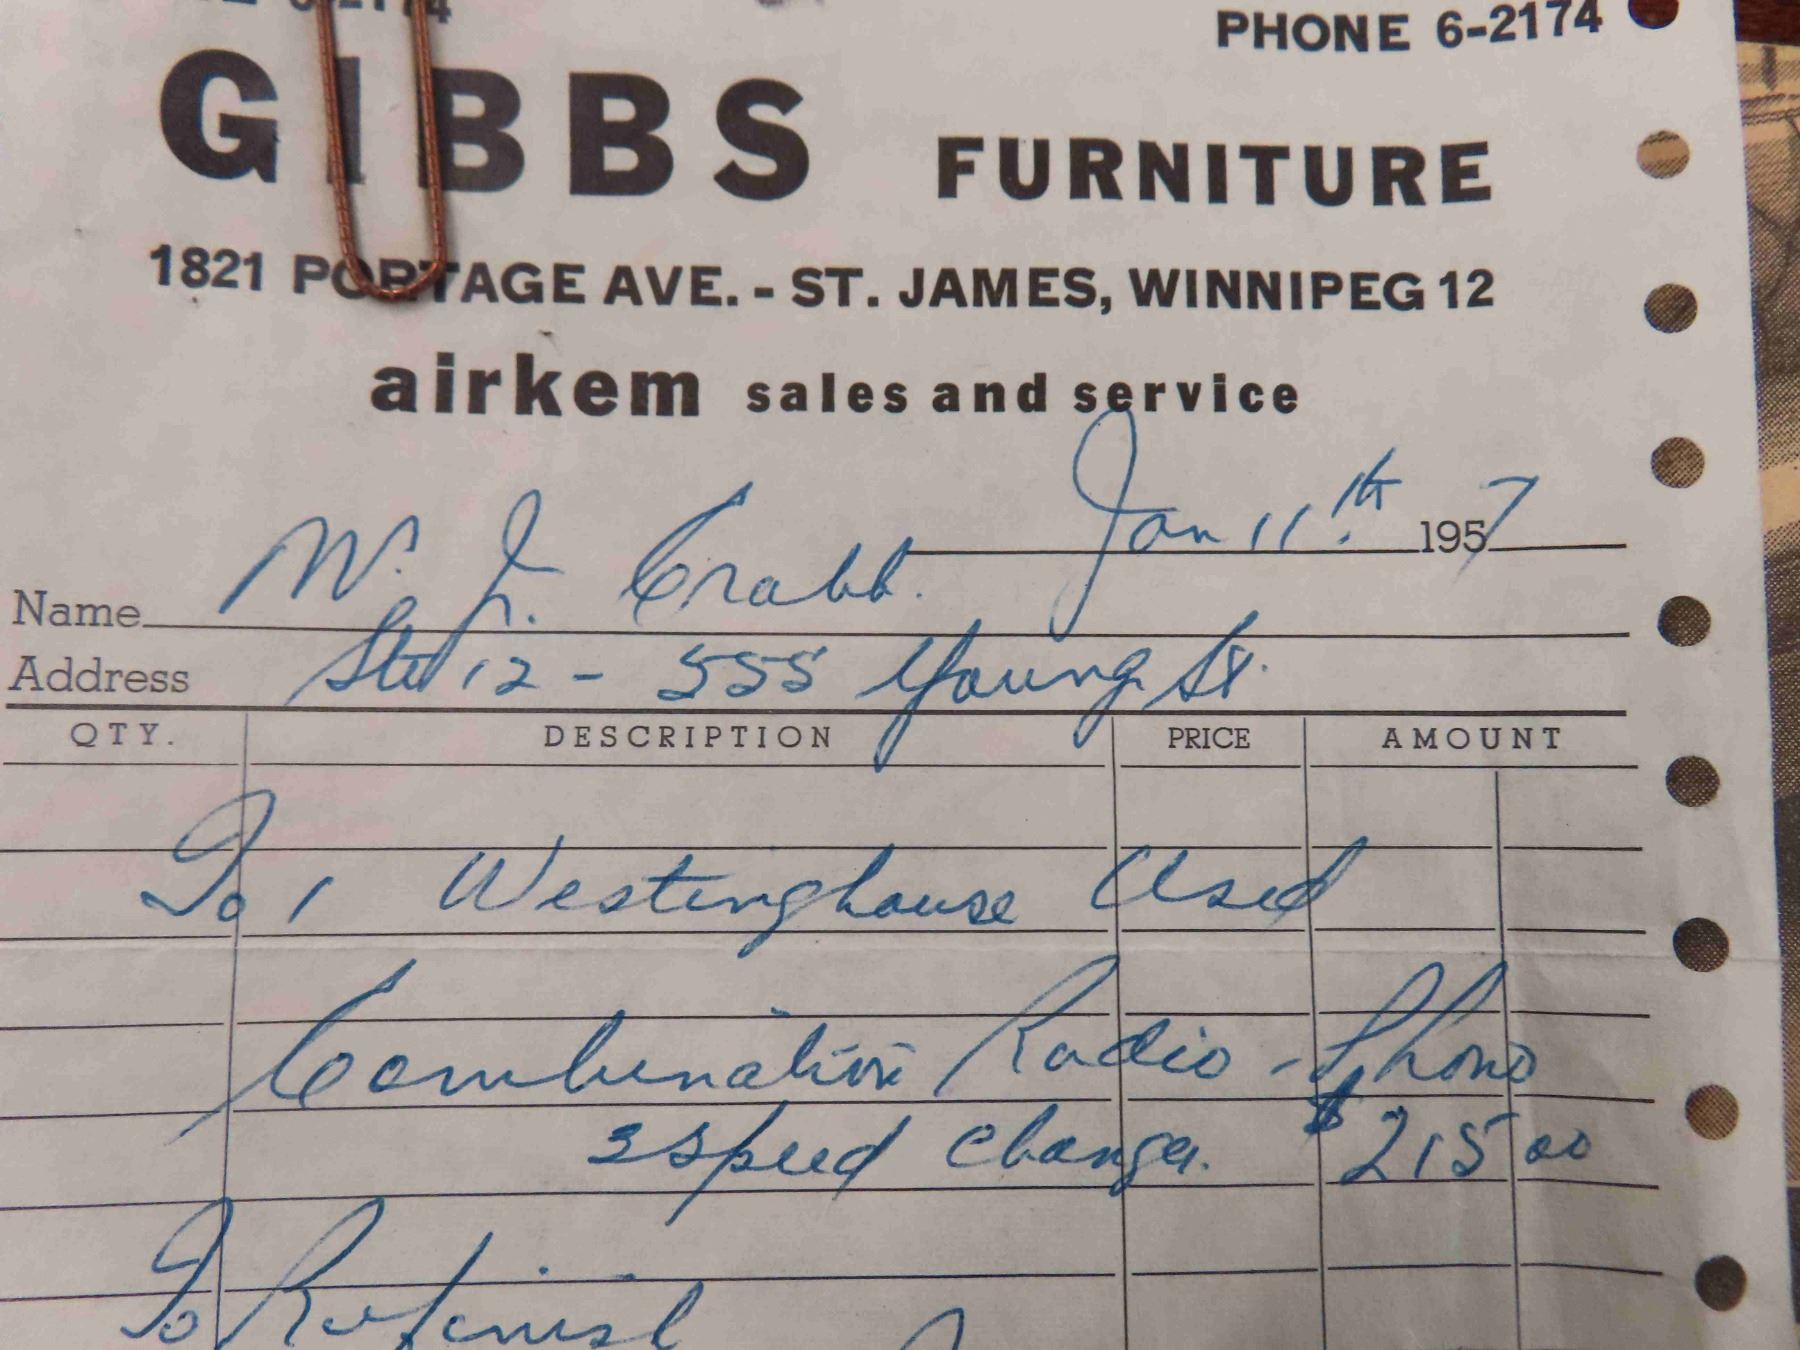 PHONE 6-2174
GIBBS FURNITURE
1821 PORTAGE AVE. - ST. JAMES, WINNIPEG 12
airkem sales and service
Jan 11th 1957
Name W. J. Crabb.
Address Ste 12 - 555 Young St.
QTY. DESCRIPTION PRICE AMOUNT
To 1 Westinghouse Used
Combination Radio - Phono
3 speed changer. $215 00
To Refinish